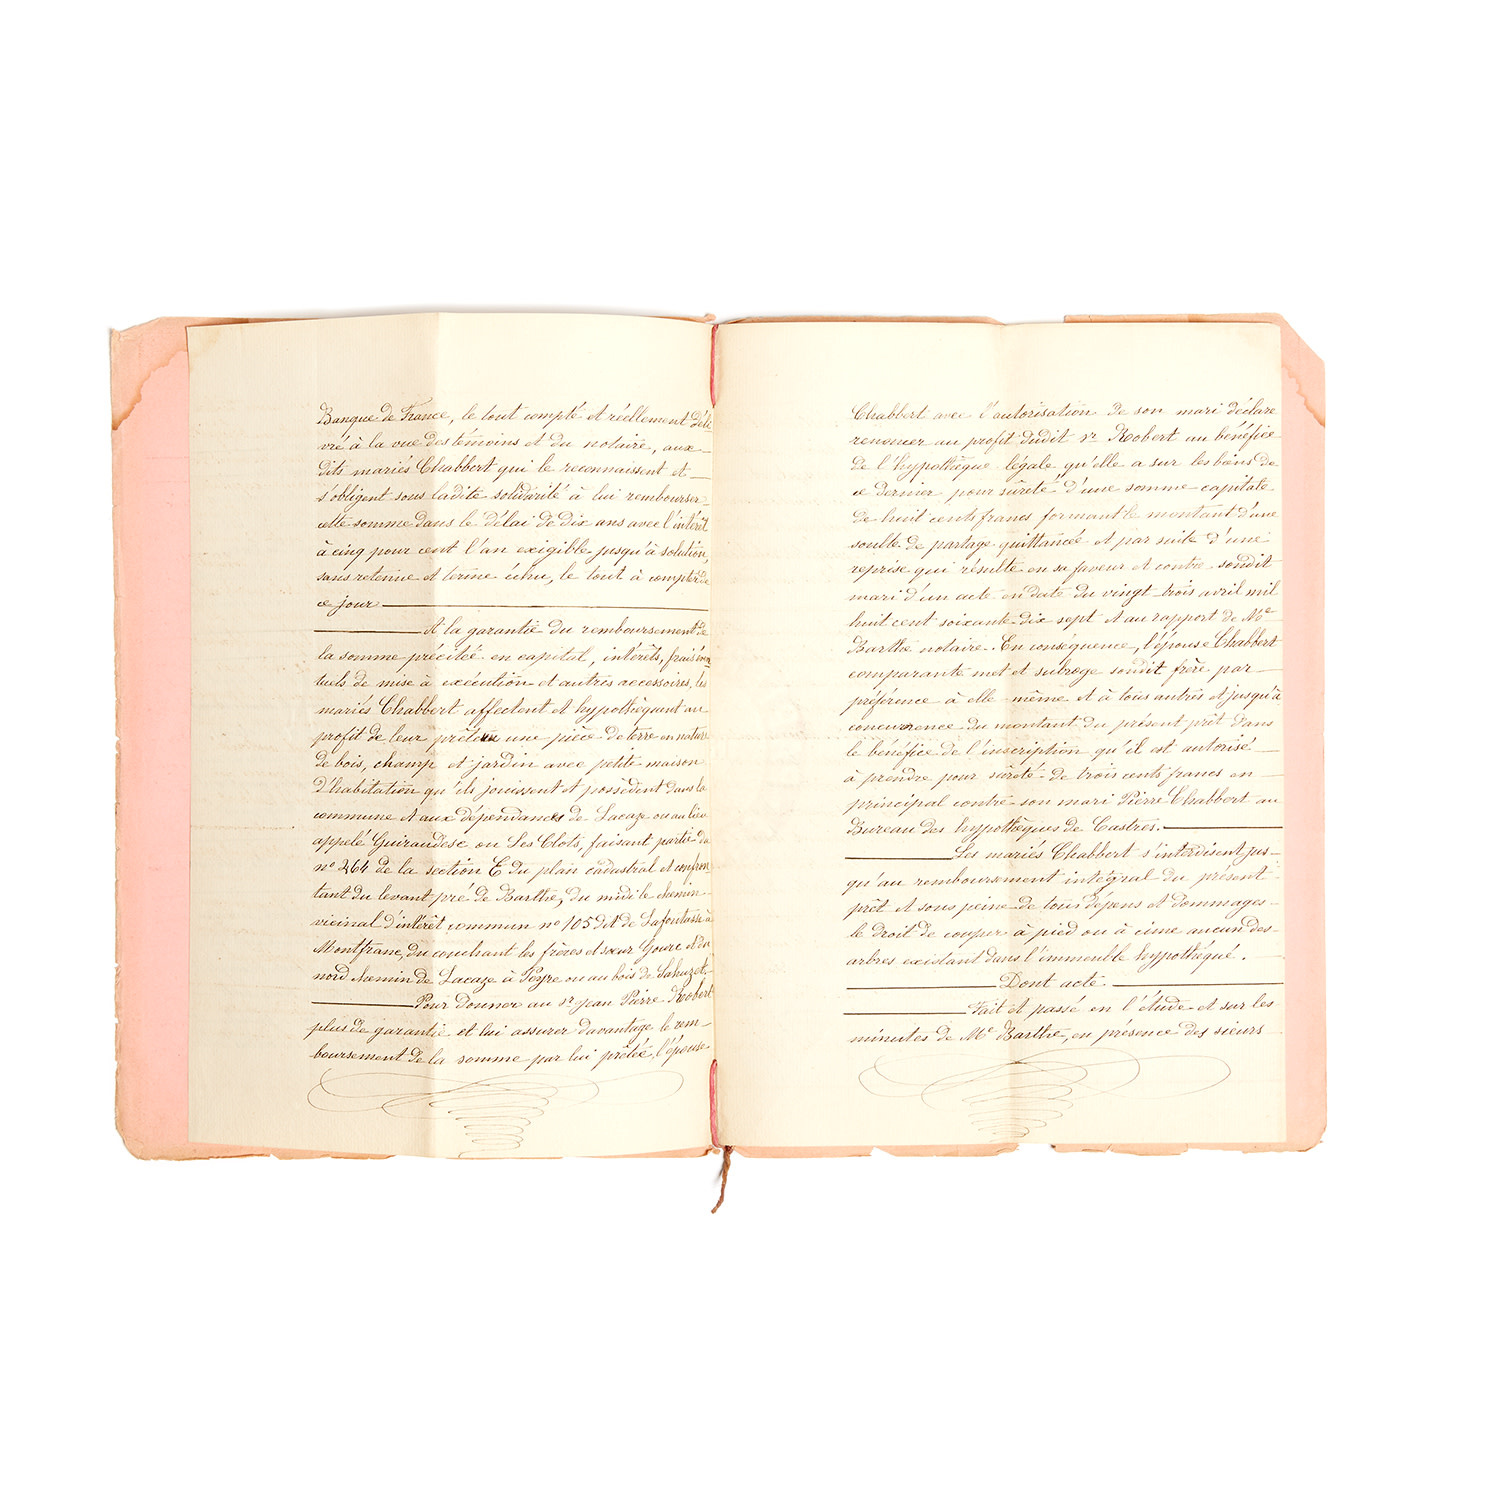 Banque de France, le tout compté et réellement déli
vré à la vue des témoins et du notaire, aux
dits mariés Chabbert qui le reconnaissent et
s'obligent sous ladite solidarité à lui rembourser
cette somme dans le délai de dix ans avec l'intérêt
à cinq pour cent l'an exigible jusqu'à solution,
sans retenue et terme échu, le tout à compter de
ce jour
A la garantie du remboursement de
la somme précitée en capital, intérêts, frais éven
tuels de mise à exécution et autres accessoires, les
mariés Chabbert affectent et hypothèquent au
profit de leur prêteur une pièce de terre en nature
de bois, champ et jardin avec petite maison
d'habitation qu'ils jouissent et possèdent dans la
commune et aux dépendances de Lacaze ou au lieu
appelé Guiraudesc ou Les Clots, faisant partie du
n° 264 de la section E du plan cadastral et confron
tant du levant pré de Barthe, du midi le chemin
vicinal d'intérêt commun n° 105 dit de Lafontasse à
Montfranc, du couchant les frères et sœur Gourc et du
nord chemin de Lacaze à Peyre ou au bois de
Pour donner au sr Jean Pierre Robert
plus de garantie et lui assurer davantage le rem-
boursement de la somme par lui prêtée, l'épouse
Chabbert avec l'autorisation de son mari déclare
renoncer au profit dudit sr Robert au bénéfice
de l'hypothèque légale qu'elle a sur les biens de
ce dernier pour sûreté d'une somme capitale
de huit cents francs formant le montant d'une
soulte de partage quittancée et par suite d'une
reprise qui résulte en sa faveur et contre sondit
mari d'un acte en date du vingt-trois avril mil
huit cent soixante-dix sept et au rapport de Me
Barthe notaire. En conséquence, l'épouse Chabbert
comparante met et subroge sondit frère par
préférence à elle-même et à tous autres et jusqu'à
concurrence du montant du présent prêt dans
le bénéfice de l'inscription qu'il est autorisé
à prendre pour sûreté de trois cents francs en
principal contre son mari Pierre Chabbert au
Bureau des hypothèques de Castres.
Les mariés Chabbert s'interdisent jus-
qu'au remboursement intégral du présent
prêt et sous peine de tous dépens et dommages
le droit de couper à pied ou à cime aucun des
arbres existant dans l'immeuble hypothéqué.
Dont acte
Fait et passé en l'étude et sur les
minutes de Me Barthe, en présence des sieurs